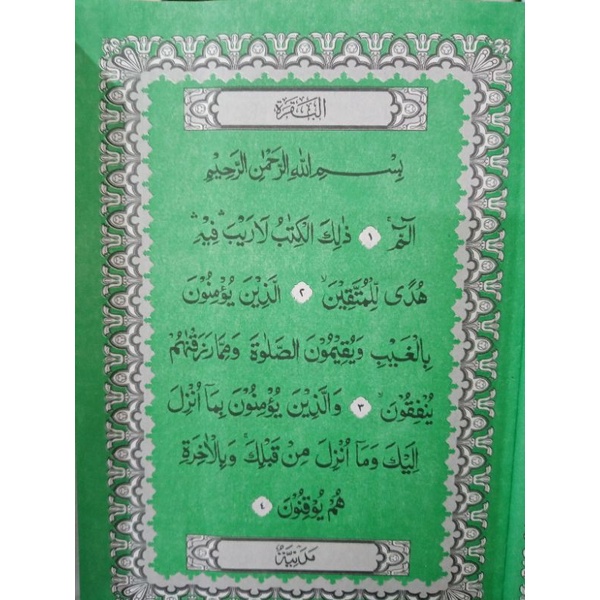 البقرة
بِسْمِ اللهِ الرَّحْمٰنِ الرَّحِيْمِ
الٓمّٓ ۚ ١ ذٰلِكَ الْكِتٰبُ لَا رَيْبَ ۛ فِيْهِ ۛ
هُدًى لِّلْمُتَّقِيْنَ ۙ ٢ الَّذِيْنَ يُؤْمِنُوْنَ
بِالْغَيْبِ وَيُقِيْمُوْنَ الصَّلٰوةَ وَمِمَّا رَزَقْنٰهُمْ
يُنْفِقُوْنَ ۙ ٣ وَالَّذِيْنَ يُؤْمِنُوْنَ بِمَآ اُنْزِلَ
اِلَيْكَ وَمَآ اُنْزِلَ مِنْ قَبْلِكَ ۚ وَبِالْاٰخِرَةِ
هُمْ يُوْقِنُوْنَ ۗ ٤
مدنية